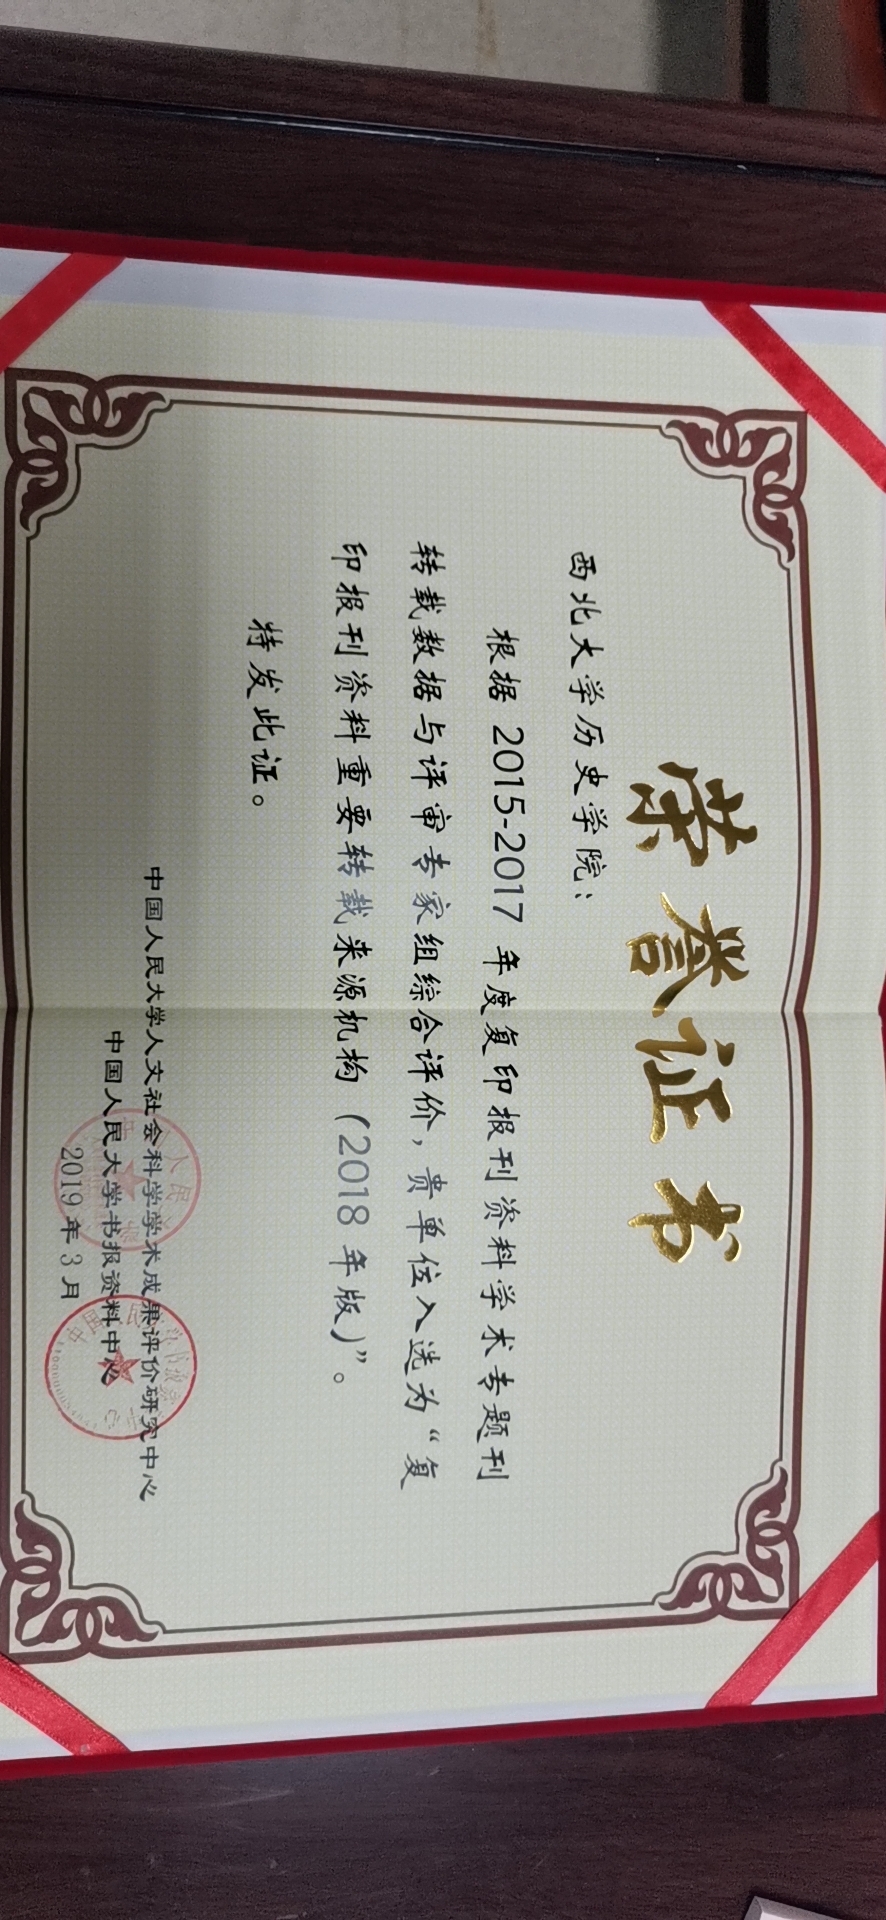 荣誉证书
西北大学历史学院：
根据 2015-2017 年度复印报刊资料学术专题刊
转载数据与评审专家组综合评价，贵单位入选为“复
印报刊资料重要转载来源机构（2018 年版）”。
特发此证。
中国人民大学人文社会科学学术成果评价研究中心
中国人民大学书报资料中心
2019 年 3 月